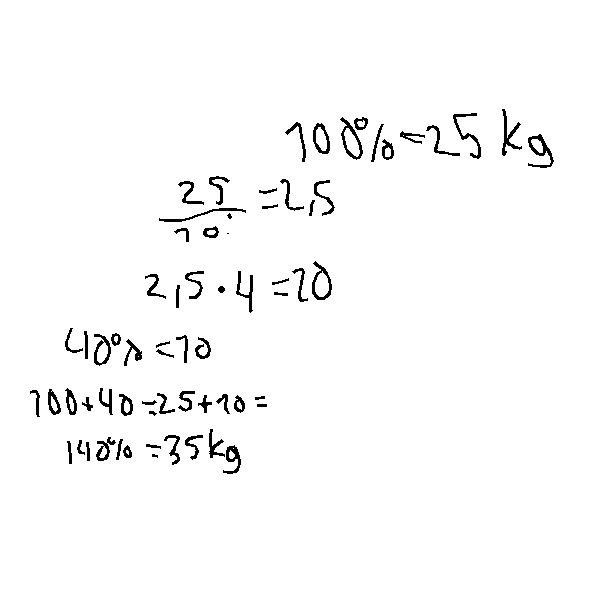 100% = 25 kg
25/10 = 2,5
2,5 · 4 = 10
40% = 10
100 + 40 = 25 + 10 =
140% = 35 kg